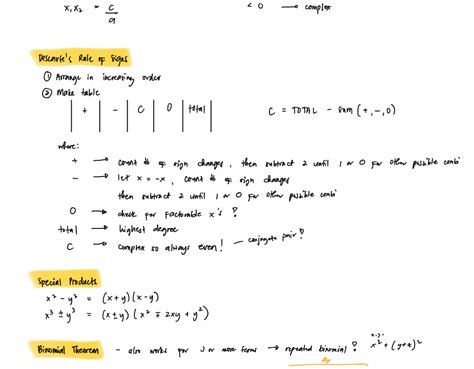 x₁x₂ = c/a
< 0 → complex
Descarte's Rule of Signs
① Arrange in increasing order
② Make table
| + | - | C | 0 | total |
C = TOTAL - sum (+, -, 0)
where:
+ → count # of sign changes, then subtract 2 until 1 or 0 for other possible combi
- → let x = -x, count # of sign changes
then subtract 2 until 1 or 0 for other possible combi
0 → check for factorable x's?
total → highest degree
C → complex so always even! — conjugate pair?
Special Products
x² - y² = (x+y)(x-y)
x³ ± y³ = (x±y)(x² ∓ 2xy + y²)
Binomial Theorem - also works for 3 or more terms → repeated binomial? x² + (y+z)²